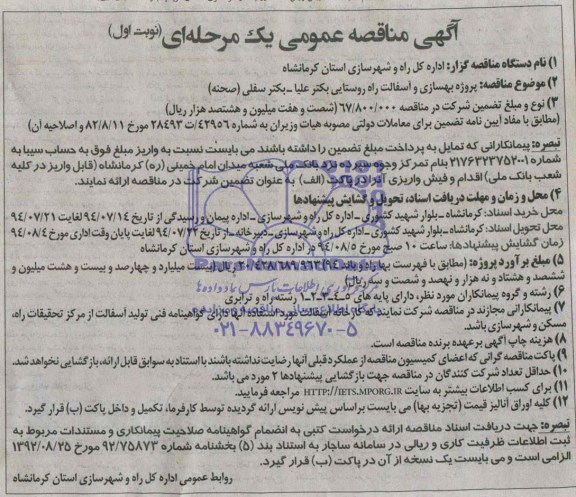 آگهی مناقصه عمومی یک مرحله‌ای (نوبت اول)
۱) نام دستگاه مناقصه گزار: اداره کل راه و شهرسازی استان کرمانشاه
۲) موضوع مناقصه: پروژه بهسازی و آسفالت راه روستایی بکتر علیا ـ بکتر سفلی (صحنه)
۳) نوع و مبلغ تضمین شرکت در مناقصه ۶۷/۸۰۰/۰۰۰ (شصت و هفت میلیون و هشتصد هزار ریال)
(مطابق با مفاد آیین نامه تضمین برای معاملات دولتی مصوبه هیات وزیران به شماره ۴۲۹۵۶/ت ۲۸۴۹۳ مورخ ۸۲/۸/۱۱ و اصلاحیه آن)
تبصره: پیمانکارانی که تمایل به پرداخت مبلغ تضمین را داشته باشند می بایست نسبت به واریز مبلغ فوق به حساب سیبا به
شماره ۲۱۷۶۳۲۳۷۵۲۰۰۱ بنام تمرکز وجوه سپرده نزد بانک ملی شعبه میدان امام خمینی (ره) کرمانشاه (قابل واریز در کلیه
شعب بانک ملی) اقدام و فیش واریزی آنرا در پاکت (الف) به عنوان تضمین شرکت در مناقصه ارائه نمایند.
۴) محل و زمان و مهلت دریافت اسناد، تحویل و گشایش پیشنهادها
محل خرید اسناد: کرمانشاه ـ بلوار شهید کشوری ـ اداره کل راه و شهرسازی ـ اداره پیمان و رسیدگی از تاریخ ۹۴/۰۷/۱۴ لغایت ۹۴/۰۷/۲۱
محل تحویل اسناد: کرمانشاه ـ بلوار شهید کشوری ـ اداره کل راه و شهرسازی ـ دبیرخانه ـ از تاریخ ۹۴/۰۷/۲۲ لغایت پایان وقت اداری مورخ ۹۴/۰۸/۴
زمان گشایش پیشنهادها: ساعت ۱۰ صبح مورخ ۹۴/۰۸/۵ در اداره کل راه و شهرسازی استان کرمانشاه
۵) مبلغ برآورد پروژه: (مطابق با فهرست بها راه و باند ریال (بیست میلیارد و چهارصد و بیست و هشت میلیون و
ششصد و هشتاد و نه هزار و نهصد و شصت و سه ریال)
۶) رشته و گروه پیمانکاران مورد نظر، دارای پایه های ۵ـ۴ـ۳ـ۲ـ۱ رشته راه و ترابری
۷) پیمانکارانی مجازند در مناقصه شرکت نمایند که کارخانه آسفالت مورد استفاده آنها دارای گواهینامه فنی تولید آسفالت از مرکز تحقیقات راه،
مسکن و شهرسازی باشد.
۸) هزینه چاپ آگهی بر عهده برنده مناقصه است.
۹) پاکت مناقصه گرانی که اعضای کمیسیون مناقصه از عملکرد قبلی آنها رضایت نداشته باشند با استناد به سوابق قابل ارائه، بازگشایی نخواهد شد.
۱۰) حداقل تعداد شرکت کنندگان در مناقصه جهت بازگشایی پیشنهادها ۲ مورد می باشد.
۱۱) برای کسب اطلاعات بیشتر به سایت HTTP://IETS.MPORG.IR مراجعه فرمایید.
۱۲) کلیه اوراق آنالیز قیمت (تجزیه بها) می بایست براساس پیش نویس ارائه گردیده توسط کارفرما، تکمیل و داخل پاکت (ب) قرار گیرد.
تبصره: جهت دریافت اسناد مناقصه ارائه درخواست کتبی به انضمام گواهینامه صلاحیت پیمانکاری و مستندات مربوط به
ثبت اطلاعات ظرفیت کاری و ریالی در سامانه ساجار به استناد بند (۵) بخشنامه شماره ۹۲/۷۵۸۷۳ مورخ ۱۳۹۲/۰۸/۲۵
الزامی است و می بایست یک نسخه از آن در پاکت (ب) قرار گیرد.
روابط عمومی اداره کل راه و شهرسازی استان کرمانشاه
۰۲۱-۸۸۳۴۹۶۷۰-۵